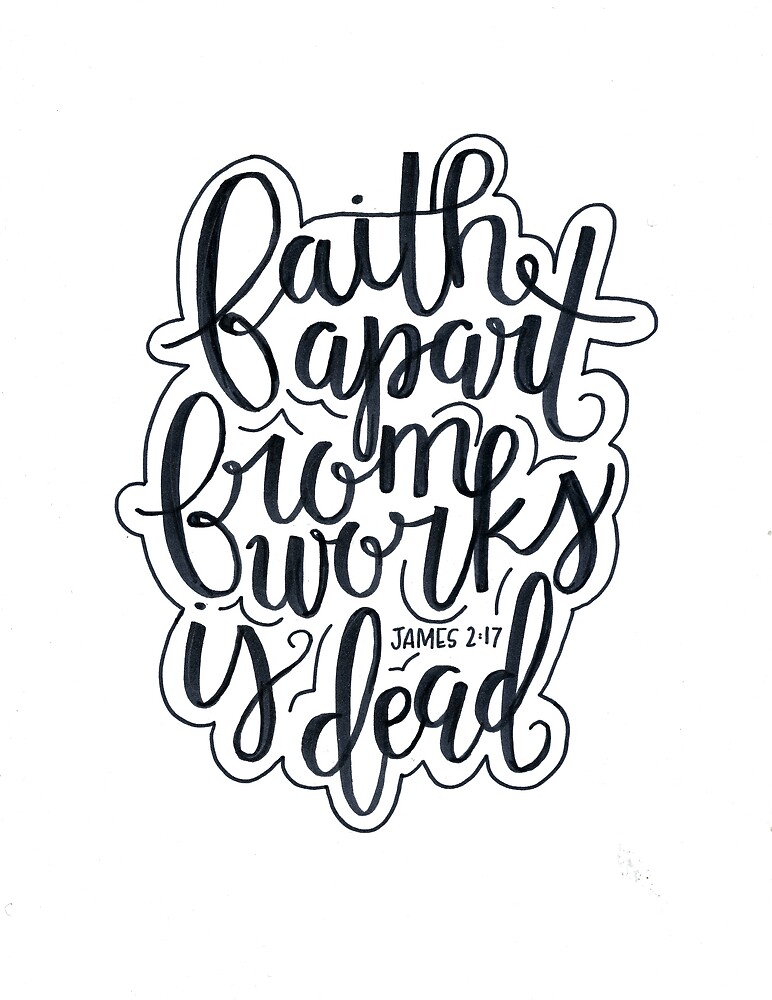 faith
apart
from
works
is
JAMES 2:17
dead